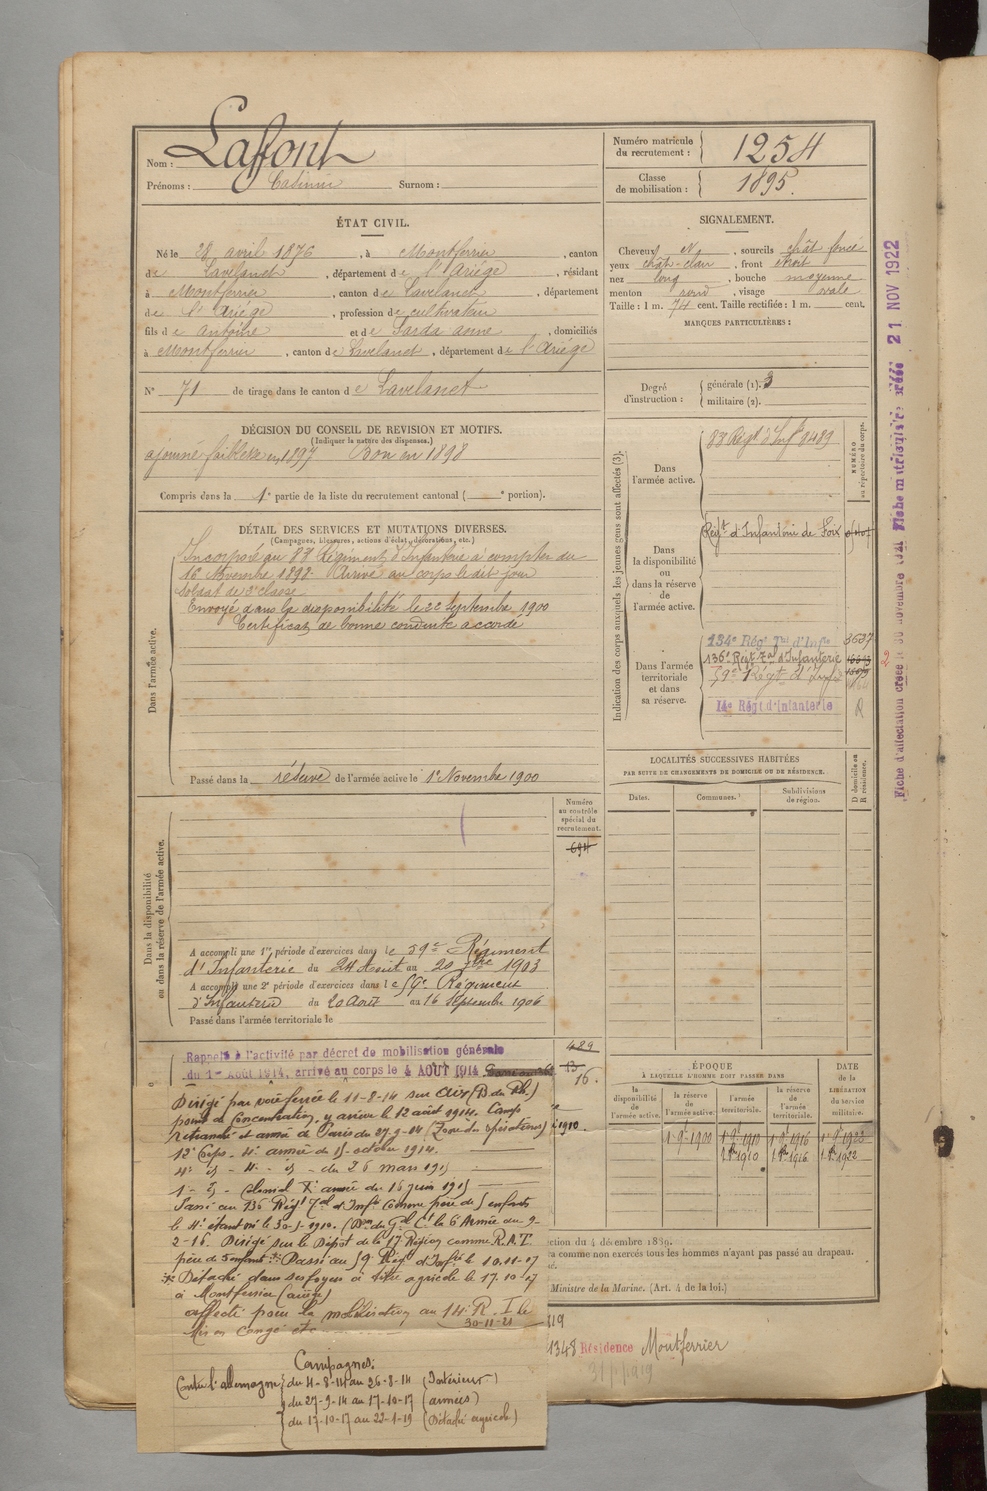 Nom : Lafont
Prénoms : Casimir Surnom :
Numéro matricule du recrutement : 1254
Classe de mobilisation : 1895.
ÉTAT CIVIL.
Né le 28 avril 1876, à Montferrier, canton
de Lavelanet, département de l'Ariége, résidant
à Montferrier, canton de Lavelanet, département
de l'Ariége, profession de cultivateur
fils de Antoine et de Sarda Anne, domiciliés
à Montferrier, canton de Lavelanet, département de l'Ariége
N° 71 de tirage dans le canton de Lavelanet
SIGNALEMENT.
Cheveux N, sourcils chât foncé
yeux chât-clair, front étroit
nez long, bouche moyenne
menton rond, visage ovale
Taille : 1 m. 74 cent. Taille rectifiée : 1 m. cent.
MARQUES PARTICULIÈRES :
Degré d'instruction : générale (1). 3
militaire (2).
DÉCISION DU CONSEIL DE REVISION ET MOTIFS.
(Indiquer la nature des dispenses.)
ajourné faiblesse en 1897 Bon en 1898
Compris dans la 1e partie de la liste du recrutement cantonal ( e portion).
DÉTAIL DES SERVICES ET MUTATIONS DIVERSES.
(Campagnes, blessures, actions d'éclat, décorations, etc.)
Dans l'armée active.
Incorporé au 83 Régiment d'Infanterie à compter du
16 Novembre 1898. Arrivé au corps le dit jour
soldat de 2e classe
Envoyé dans la disponibilité le 22 septembre 1900
Certificat de bonne conduite accordé
Passé dans la réserve de l'armée active le 1er Novembre 1900
Indication des corps auxquels les jeunes gens sont affectés (3).
NUMÉRO au répertoire du corps.
Dans l'armée active.
83 Régt d'Inf 9489
Dans la disponibilité ou dans la réserve de l'armée active.
Régt d'Infanterie de Foix
Dans l'armée territoriale et dans sa réserve.
134e Régt Tal d'Infie 3637
136e Régt Tal d'Infanterie
59e Régt d'Infie
14e Régt d'Infanterie R
2
LOCALITÉS SUCCESSIVES HABITÉES
PAR SUITE DE CHANGEMENTS DE DOMICILE OU DE RÉSIDENCE.
Dates.
Communes.
Subdivisions de région.
D domicile ou R résidence.
Dans la disponibilité ou dans la réserve de l'armée active.
Numéro au contrôle spécial du recrutement.
694
A accompli une 1re période d'exercices dans le 59e Régiment
d'Infanterie du 24 Août au 20 7bre 1903
A accompli une 2e période d'exercices dans le 59e Régiment
d'Infanterie du 20 Août au 16 Septembre 1906
Passé dans l'armée territoriale le
Rappelé à l'activité par décret de mobilisation générale
du 1er Août 1914, arrivé au corps le 4 AOUT 1914
429
13
16.
Dirigé par voie ferrée le 11-8-14 sur Aix (B. du Rh.)
point de Concentration, y arrive le 12 août 1914. Camp
retranché et armée de Paris du 27-9-14 (Zone des opérations)
12e Corps - 4e armée du 15 octobre 1914.
4e id - 4e - id - du 26 mars 1915
1er - id - Colonial Xe armée du 16 juin 1915
Passé au 136 Régt Tal d'Infie Comme père de 5 enfants
le 4e étant né le 30-5-1910. (Don du Gal Ct la 6e Armée du 9-
2-16. Dirigé sur le Dépôt de la 17e Région comme R.A.T.
père de 5 enfants. Passé au 59 Régt d'Infie le 10.11-17
Détaché dans ses foyers à titre agricole le 17-10-17
à Montferrier (Ariège)
affecté pour la mobilisation au 14e R.I. le
30-11-21
Mis en congé etc
Campagnes:
Contre l'allemagne du 4-8-14 au 26-8-14 (Intérieur)
du 27-9-14 au 17-10-17 (armées)
du 17-10-17 au 22-1-19 (Détaché agricole)
1910.
ÉPOQUE
À LAQUELLE L'HOMME DOIT PASSER DANS
la disponibilité de l'armée active.
la réserve de l'armée active.
l'armée territoriale.
la réserve de l'armée territoriale.
DATE de la LIBÉRATION du service militaire.
1er 9bre 1900 1er 9bre 1910 1er 9bre 1916 1er 9bre 1922
1er 8bre 1910 1er 8bre 1916 1er 8bre 1922
ction du 4 décembre 1889.
ra comme non exercés tous les hommes n'ayant pas passé au drapeau.
Ministre de la Marine. (Art. 4 de la loi.)
119
1348 Résidence Montferrier
Fiche d'affectation créée le 30 novembre 1921
Fiche matriculaire créée 21 NOV 1922